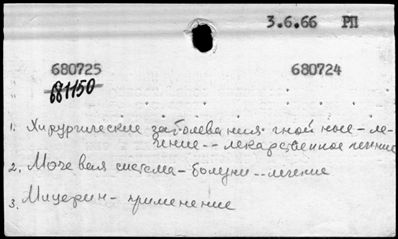 3.6.66 РП
680725 680724
681150
1. Хирургические заболевания гнойные - ле-
чение -- лекарственное лечение
2. Мочевая система - болезни -- лечение
3. Мицерин - применение